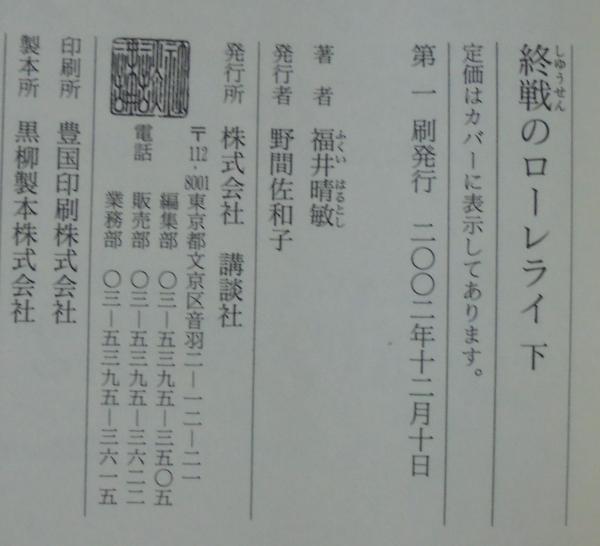 終戦のローレライ 下
しゅうせん
定価はカバーに表示してあります。
第一刷発行 二〇〇二年十二月十日
著者 福井晴敏
ふくい はるとし
発行者 野間佐和子
発行所 株式会社 講談社
〒112-8001東京都文京区音羽二―一二―二一
編集部 〇三―五三九五―三五〇五
電話 販売部 〇三―五三九五―三六二二
業務部 〇三―五三九五―三六一五
印刷所 豊国印刷株式会社
製本所 黒柳製本株式会社